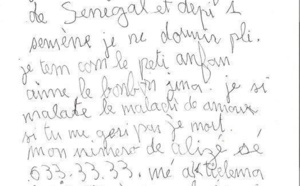 de Senegal et depi 1
semène je ne dormir pli.
je tem com le peti anfan
aime le bonbon jina. je si
malate le malacti de amour
si tu me geri pas je mort.
mon nimero de alizé sé
633.33.33. mé aktelema